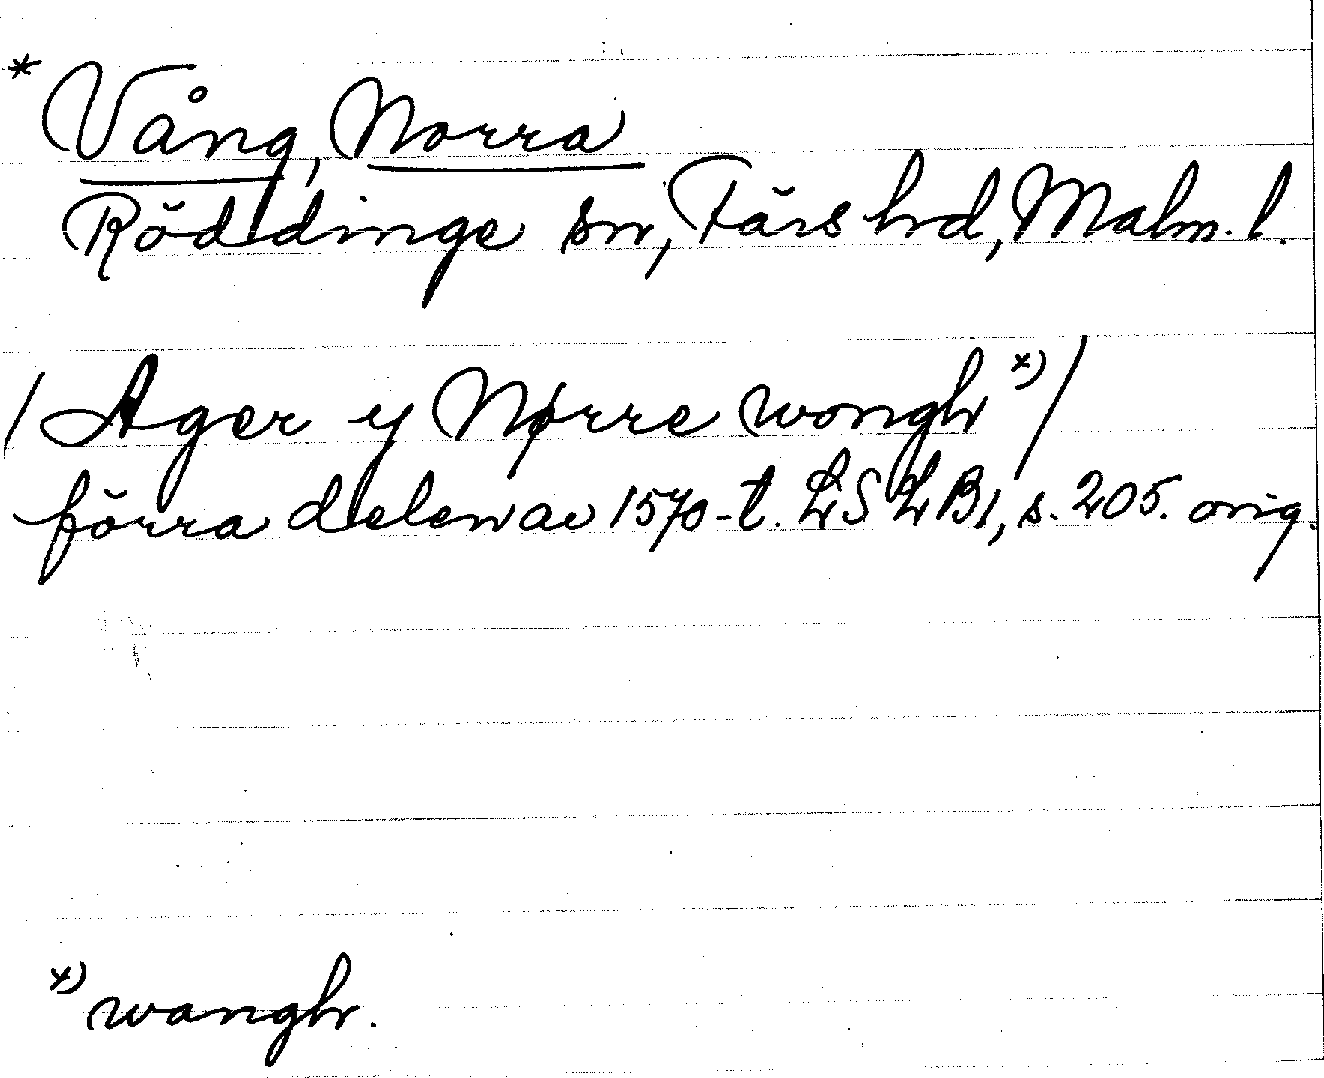 * Vång, Norra
Röddinge sn, Färs hd, Malm. l.
/ Ager y Nørre wongh *) /
förra delen av 1570-t. LSLB1, s. 205. orig.
*) wangh.